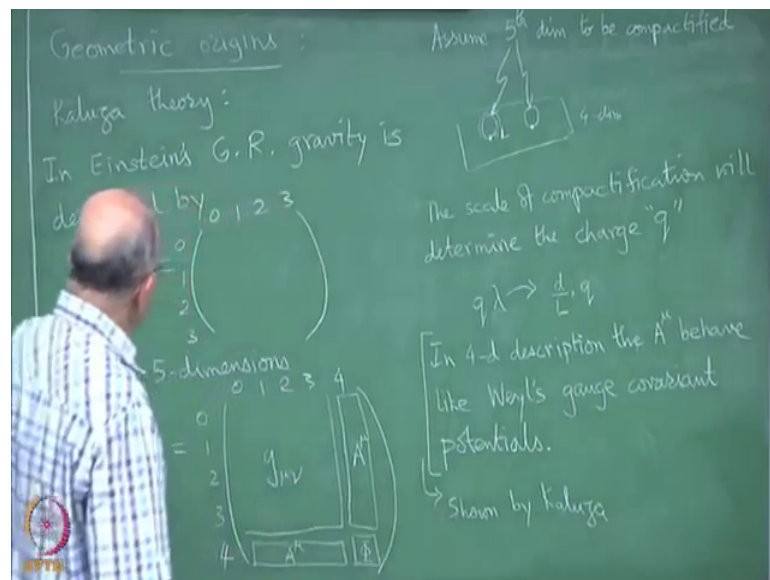 Geometric origins :
Kaluza theory :
In Einstein's G.R. gravity is
by
0 1 2 3
0
1
2
3
5-dimensions
0 1 2 3 4
0
= 1
2
3
4
gμν
Aμ
Aμ
Φ
Assume 5th dim to be compactified
L
4-dim
The scale of compactification will
determine the charge "q"
qλ → d/L · q
In 4-d description the Aμ behave
like Weyl's gauge covariant
potentials.
↳ Shown by Kaluza
NPTEL